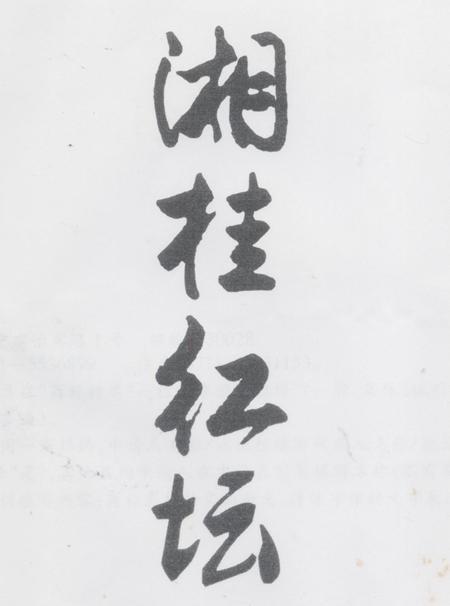 湘桂红坛